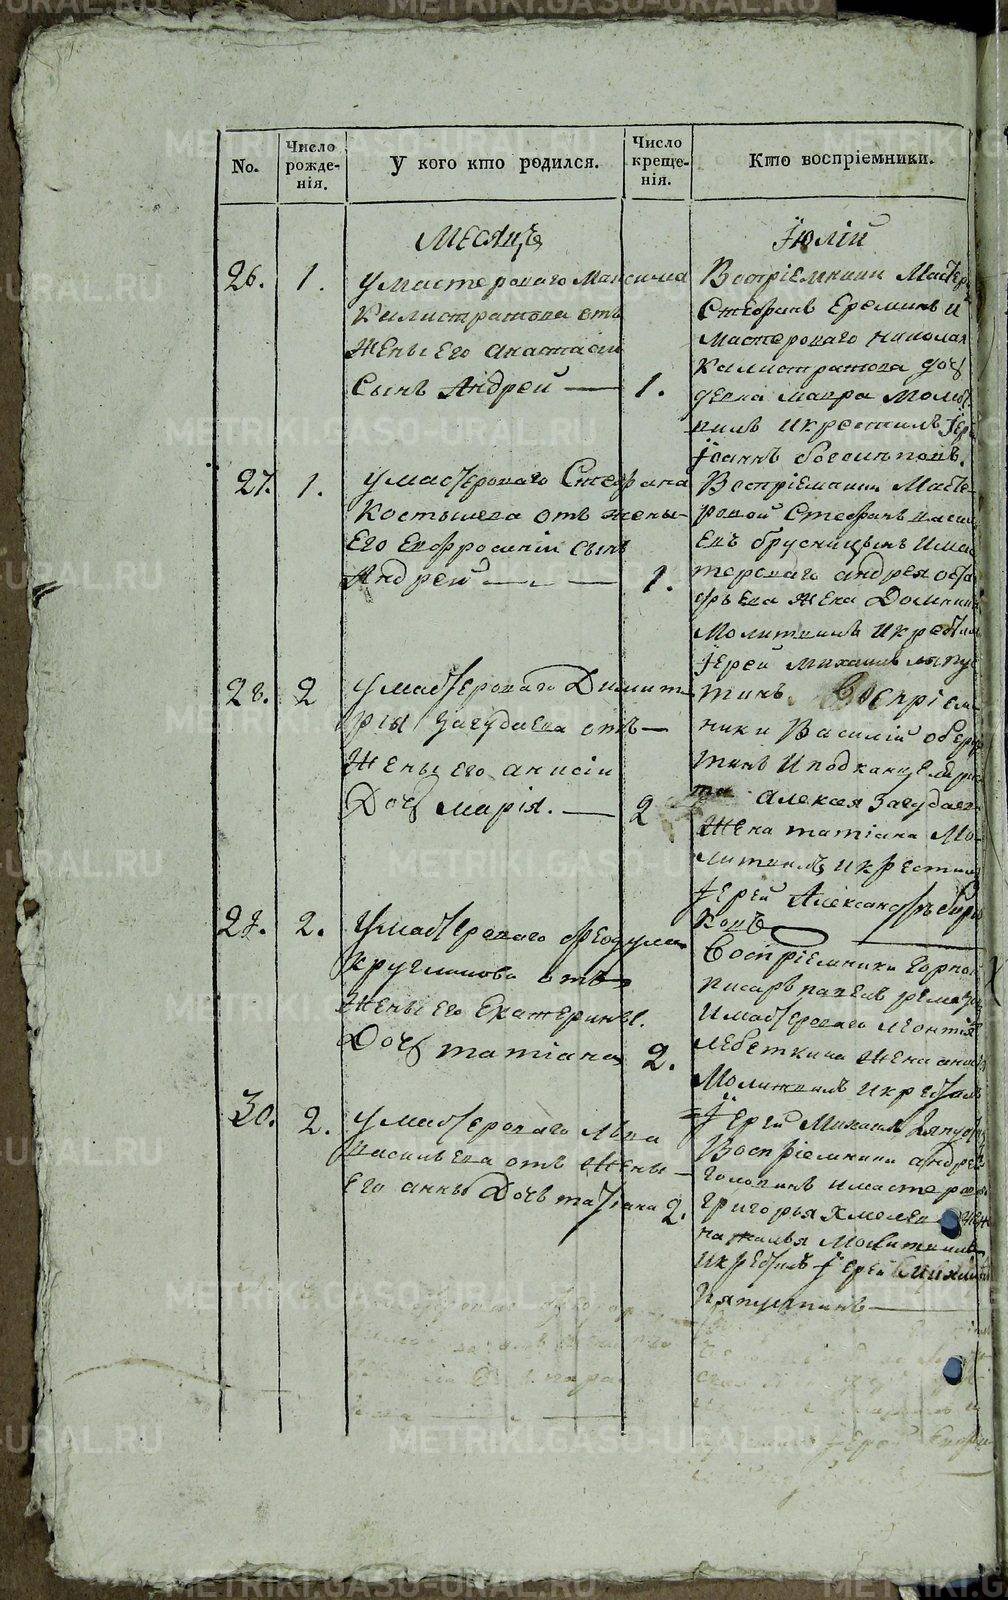 No.
Число рожде-нія.
У кого кто родился.
Число креще-нія.
Кто воспріемники.
Месяцъ
Іюлій
26.
1.
У мастероваго Максима
Калистратова отъ
жены его Анастасіи
Сынъ Андрей
1.
Воспріемники Мастер
Стефанъ Ереминъ и
мастероваго николая
Калистратова доч
девка мавра молит
вилъ икрестилъ Iерй
Іоаннъ боголеповъ.
27.
1.
У мастероваго Стефана
Костылева отъ жены
Его Евфросиніи сынъ
Андрей
1.
Воспріемники Масте-
ровой Стефанъ васил
евъ брусницынъ имас
тероваго андрея оста
фьева жена Домника
Молитвилъ икрестилъ
Іерей михаилъ ляпус
тинъ.
28.
2
У мастероваго Димит
рія Загудаева отъ
Жены его анисіи
Дочь марія.
2
Воспріем-
ники Василій
инъ иподканцеляри
ста алексея Загудаев
Жена татіана мо-
литвилъ икрестилъ
Іерей Александръ бирю
ковъ
29.
2.
У мастероваго федула
Кругликова отъ
Жены его Екатерины
Дочь татіана
2.
Воспріемники горной
писарь павелъ ремез
имастероваго леонтія
лебеткина жена
Молитвилъ икрестилъ
Іерей Михаилъ Ляпус
30.
2.
У мастероваго льва
васильева отъ жены
Его анны Дочь татіана
2.
Воспріемники андрей
головинъ имастеров
григорья хмелева жен
наталья молитвилъ
икрестилъ Іерей михаилъ
Ляпустинъ
METRIKI.GASO-URAL.RU